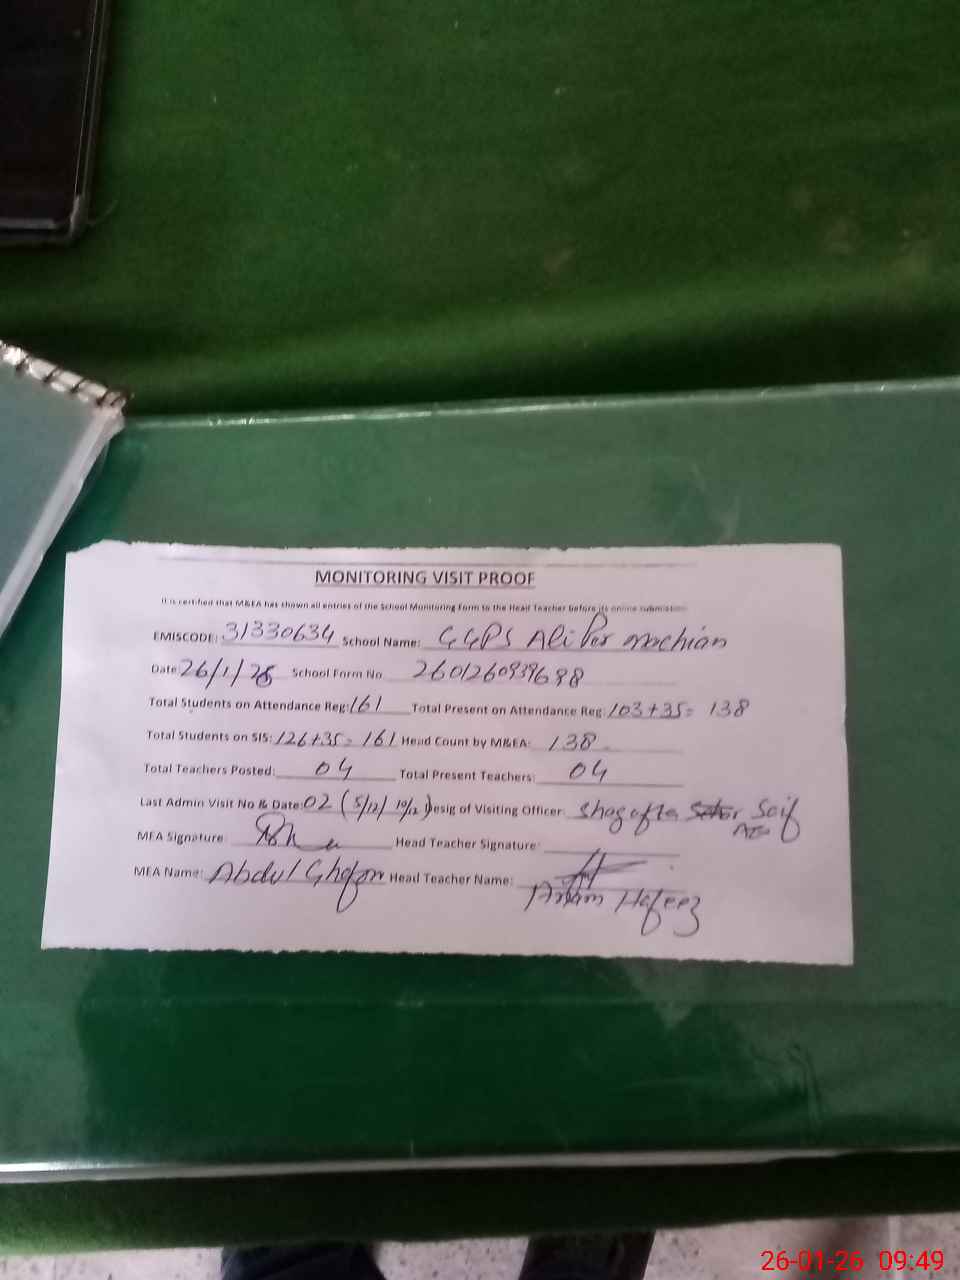 MONITORING VISIT PROOF
It is certified that M&EA has shown all entries of the School Monitoring Form to the Head Teacher before its online submission
EMISCODE: 31330634 School Name: GGPS Ali Pur Machian
Date: 26/1/26 School Form No 2601260939698
Total Students on Attendance Reg: 161 Total Present on Attendance Reg: 103+35= 138
Total Students on SIS: 126+35= 161 Head Count by M&EA: 138
Total Teachers Posted: 04 Total Present Teachers: 04
Last Admin Visit No & Date: 02 (5/12/ 10/12) Desig of Visiting Officer: Shagofta Saif
AEO
MEA Signature: Head Teacher Signature:
MEA Name: Abdul Ghafor Head Teacher Name:
Anam Hafeez
26-01-26 09:49